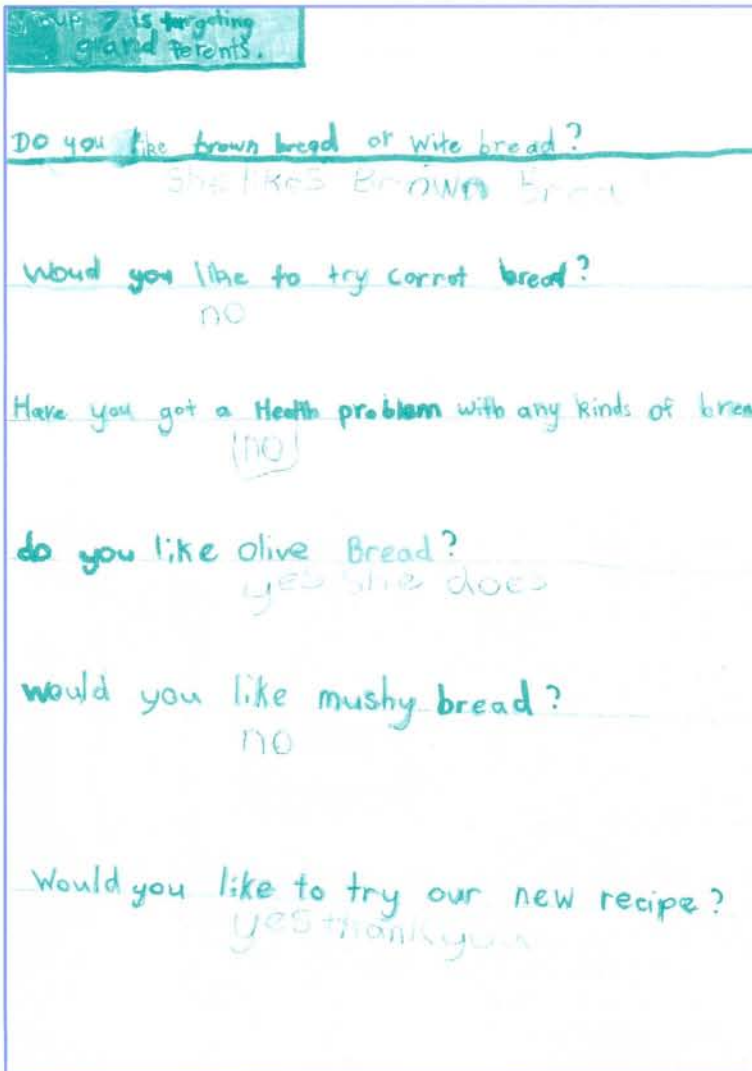 up 7 is targeting
grand Perents.
Do you like brown bread or wite bread?
She likes Brown Bread
Woud you like to try corrot bread?
no
Have you got a Health problem with any kinds of brea
(no)
do you like olive Bread?
yes she does
would you like mushy bread?
no
Would you like to try our new recipe?
yes thankyou